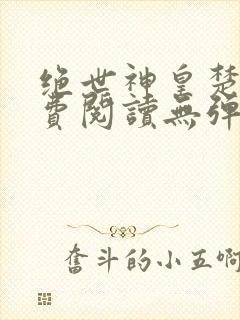 绝世神皇楚
费閱讀無彈
奮斗的小五啊